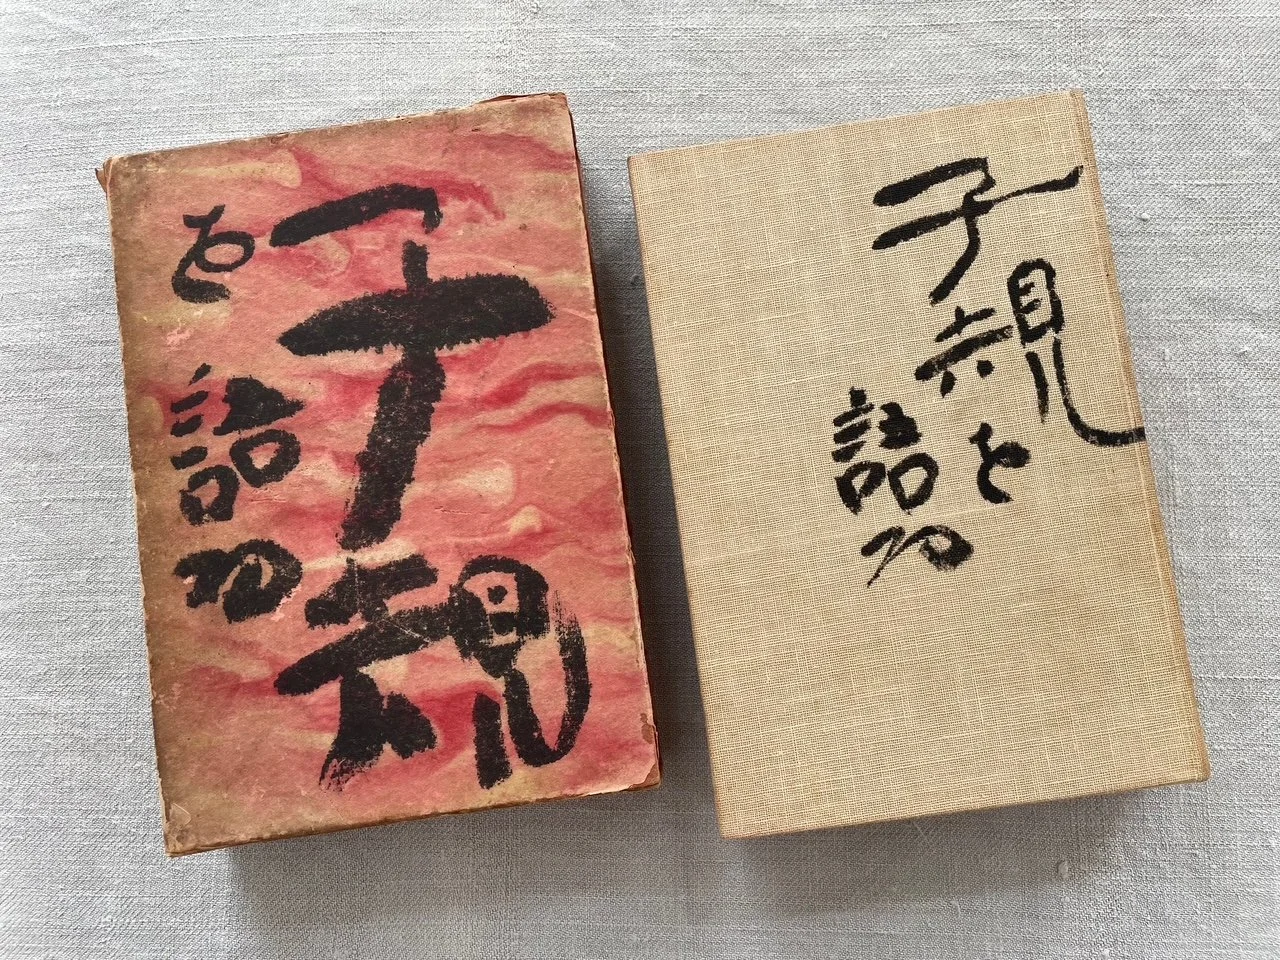 子規
を語る
子規を
語る